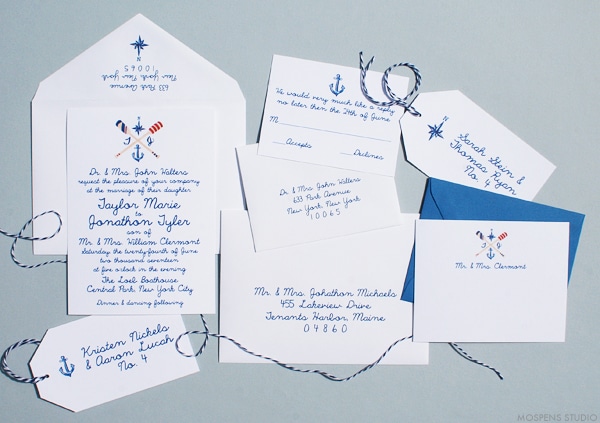 633 Park Avenue
New York New York
10065
Dr. & Mrs. John Walters
request the pleasure of your company
at the marriage of their daughter
Taylor Marie
to
Jonathon Tyler
son of
Mr. & Mrs. William Clermont
Saturday the twenty-fourth of June
two thousand seventeen
at five o'clock in the evening
The Loeb Boathouse
Central Park, New York City
Dinner & dancing following
Kristen Nickels
& Aaron Lucah
No. 4
We would very much like a reply
no later then the 24th of June
M
Accepts Declines
Dr. & Mrs. John Walters
633 Park Avenue
New York, New York
10065
Mr. & Mrs. Johathon Michaels
455 Lakeview Drive
Tenants Harbor, Maine
04860
Sarah Stein &
Thomas Ryan
No. 4
T J
Mr. & Mrs. Clermont
MOSPENS STUDIO